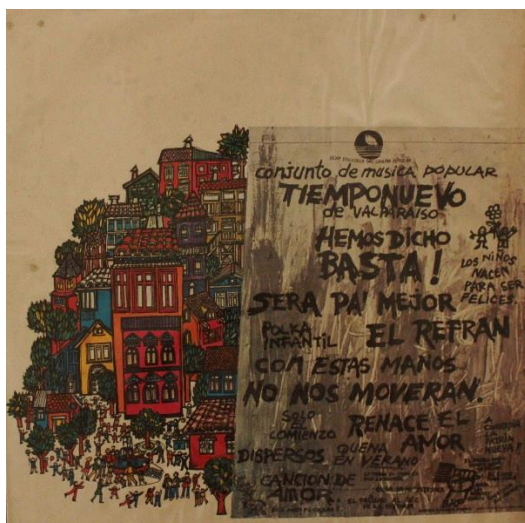 conjunto de musica popular
TIEMPONUEVO
de VALPARAISO
HEMOS DICHO
BASTA!
LOS NIÑOS
NACEN
PARA SER
FELICES.
SERA PA' MEJOR
POLKA
INFANTIL
EL REFRAN
COM ESTAS MANOS
NO NOS MOVERAN.
SOLO
EL
COMIENZO
RENACE EL
AMOR
DISPERSOS
QUENA
EN VERANO
CANCION DE
AMOR